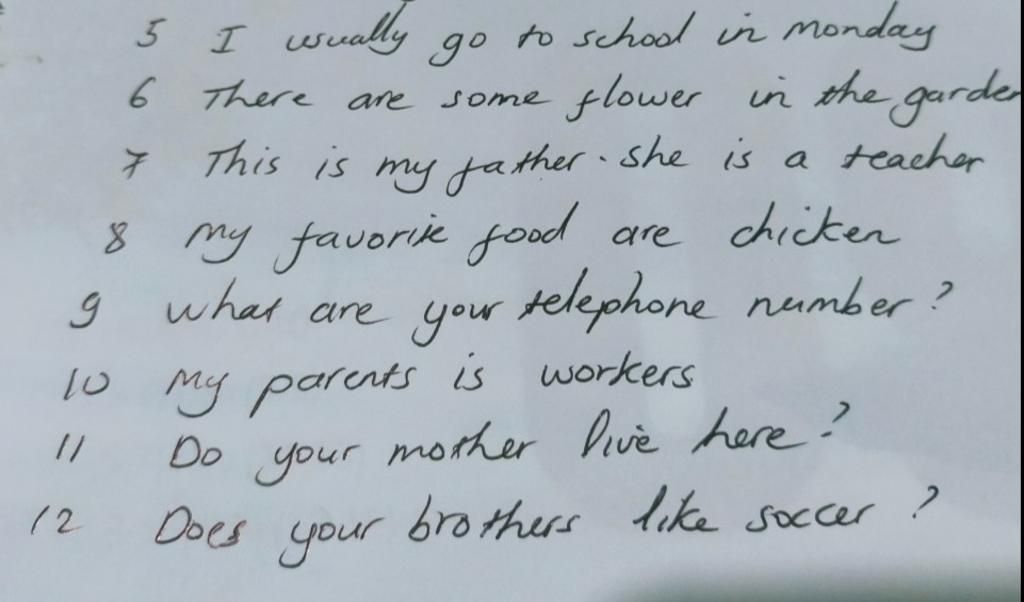 5 I usually go to school in monday
6 There are some flower in the garden
7 This is my father. she is a teacher
8 My favorite food are chicken
9 what are your telephone number?
10 My parents is workers
11 Do your mother live here?
12 Does your brothers like soccer?